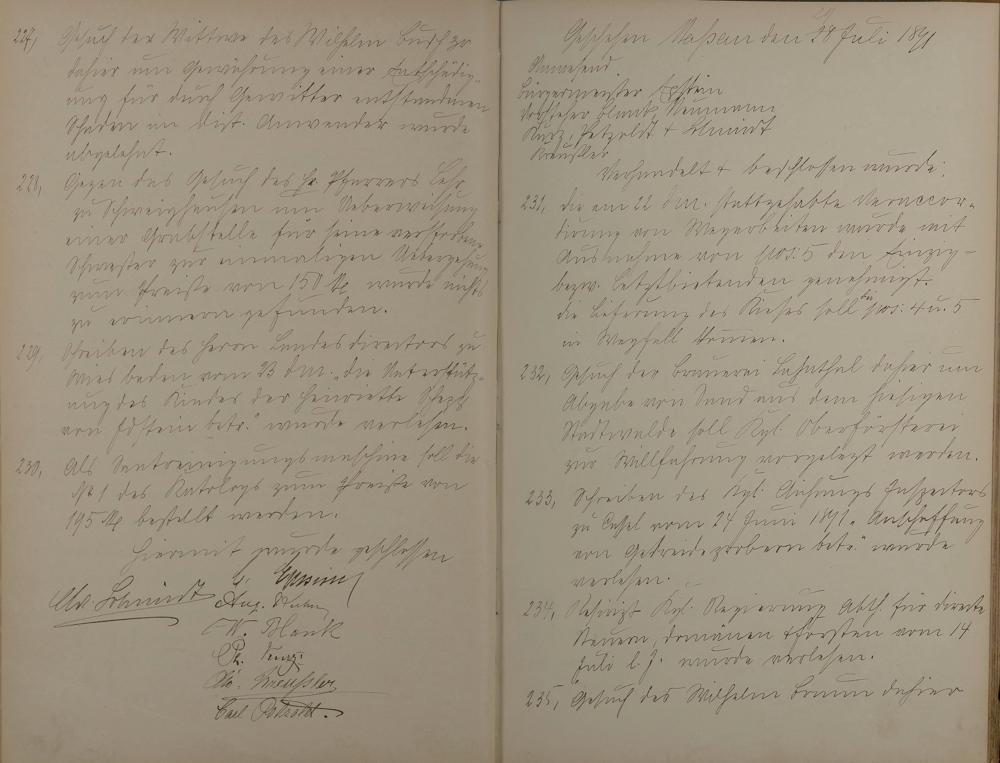 227, Gesuch der Wittwe des Wilhelm Busch
dahier um Gewährung einer Entschädig-
ung für durch Gewitter entstandenen
Schaden im Dist. Anwender wurde
abgelehnt.
228, Gegen das Gesuch des H. Pfarrers Lehr
zu Schweighausen um Ueberweisung
einer Grabstelle für seine verstorbene
Schwester zur einmaligen
zum Preise von 150 M wurde nichts
zu erinnern gefunden.
229, Schreiben des Herrn Landesdirectors zu
Wiesbaden vom 23 d M. "die Unterstütz-
ung des Kindes der Henriette
von Idstein betr." wurde verlesen.
230, Als Saatreinigungsmaschine soll die
No 1 des Katalogs zum Preise von
195 M bestellt werden.
Hiermit wurde geschlossen
Chr. Schmidt
Aug.
W. Blank
Kreußler
Carl Petzoldt.
Geschehen Nassau den 28 Juli 1891
Anwesend
Bürgermeister Epstein
Vorsteher Blank, Neumann
Kurz, Petzoldt & Schmidt
Kreußler
Verhandelt & beschlossen wurde:
231, die am 22 d M. stattgehabte Veraccor-
dirung von Wegearbeiten wurde mit
Ausnahme von pos: 5 den Einzig-
bezw. Letztbietenden genehmigt.
die Lieferung des Kieses soll bei pos: 4 u. 5
in Wegfall kommen.
232, Gesuch der Brauerei Lahnthal dahier um
Abgabe von Sand aus dem hiesigen
Stadtwalde soll Kgl. Oberförsterei
zur Willfahrung vorgelegt werden.
233, Schreiben des Kgl. Aichungs Inspectors
zu Casel vom 24 Juni 1891 "Anschaffung
von Getreideprobern betr." wurde
verlesen.
234, Kgl. Regierung Abth. für directe
Steuern, domänen & Forsten vom 14
Juli l. J. wurde verlesen.
235, Gesuch des Wilhelm Braun dahier